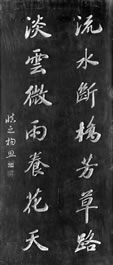 流水斷橋芳草路
淡雲微雨養花天